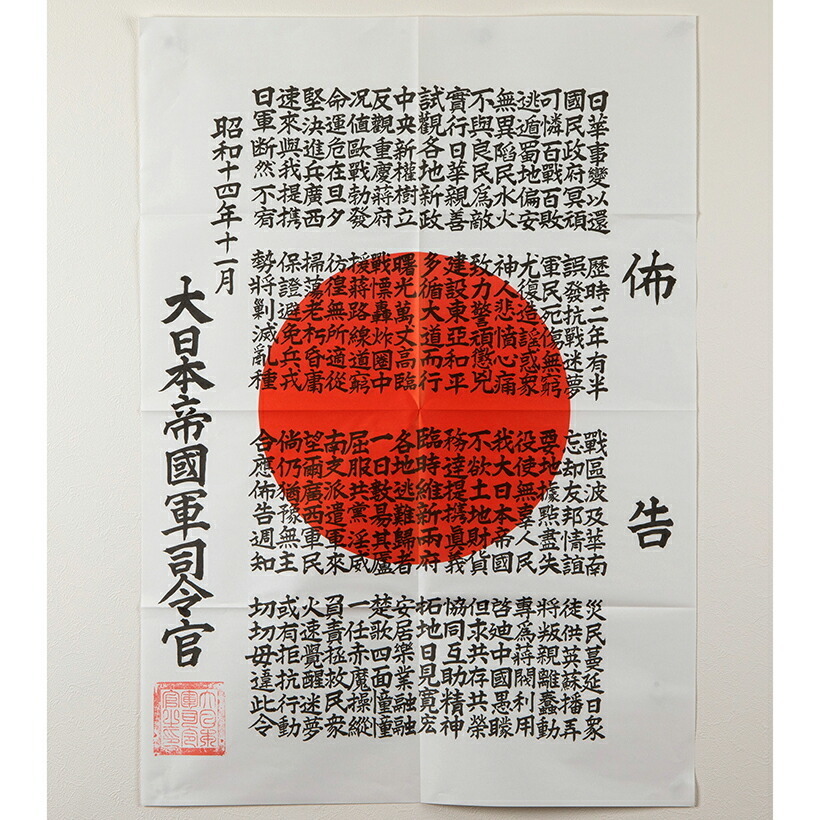 佈告
日華事變以還 歷時二年有半 戰區波及華南 災民蔓延日衆
國民政府冥頑 誤發抗戰迷夢 忘却友邦情誼 徒供英蘇播弄
可憐百戰百敗 軍民死傷無窮 要地據點盡失 將叛親離蠢動
逃遁蜀地偏安 尤復造謠惑衆 役使無辜人民 專爲蔣閥利用
無異陷民水火 神人悲憤心痛 我大日本帝國 啓迪中國愚矇
不與良民爲敵 致力警頑懲兇 不欲土地財貨 但求共存共榮
實行日華親善 建設東亞和平 務達提携眞義 協同互助精神
試觀各地新政 多循大道而行 臨時維新兩府 拓地日見寬宏
中央新權樹立 曙光萬丈高臨 各地逃難歸者 安居樂業融融
反觀重慶蔣府 戰慄轟炸圈中 一日數易其廬 楚歌四面憧憧
况值歐戰勃發 援蔣路線道窮 屈服共黨淫威 一任赤魔操縱
命運危在旦夕 彷徨無所適從 南支派遣軍來 負責拯救民衆
堅決進兵廣西 掃蕩老朽昏庸 望爾廣西軍民 火速覺醒迷夢
速來與我提携 保證避免兵戎 倘仍猶豫無主 或有拒抗行動
日軍断然不宥 勢將剿滅亂種 合應佈告週知 切切毋違此令
昭和十四年十一月
大日本帝國軍司令官